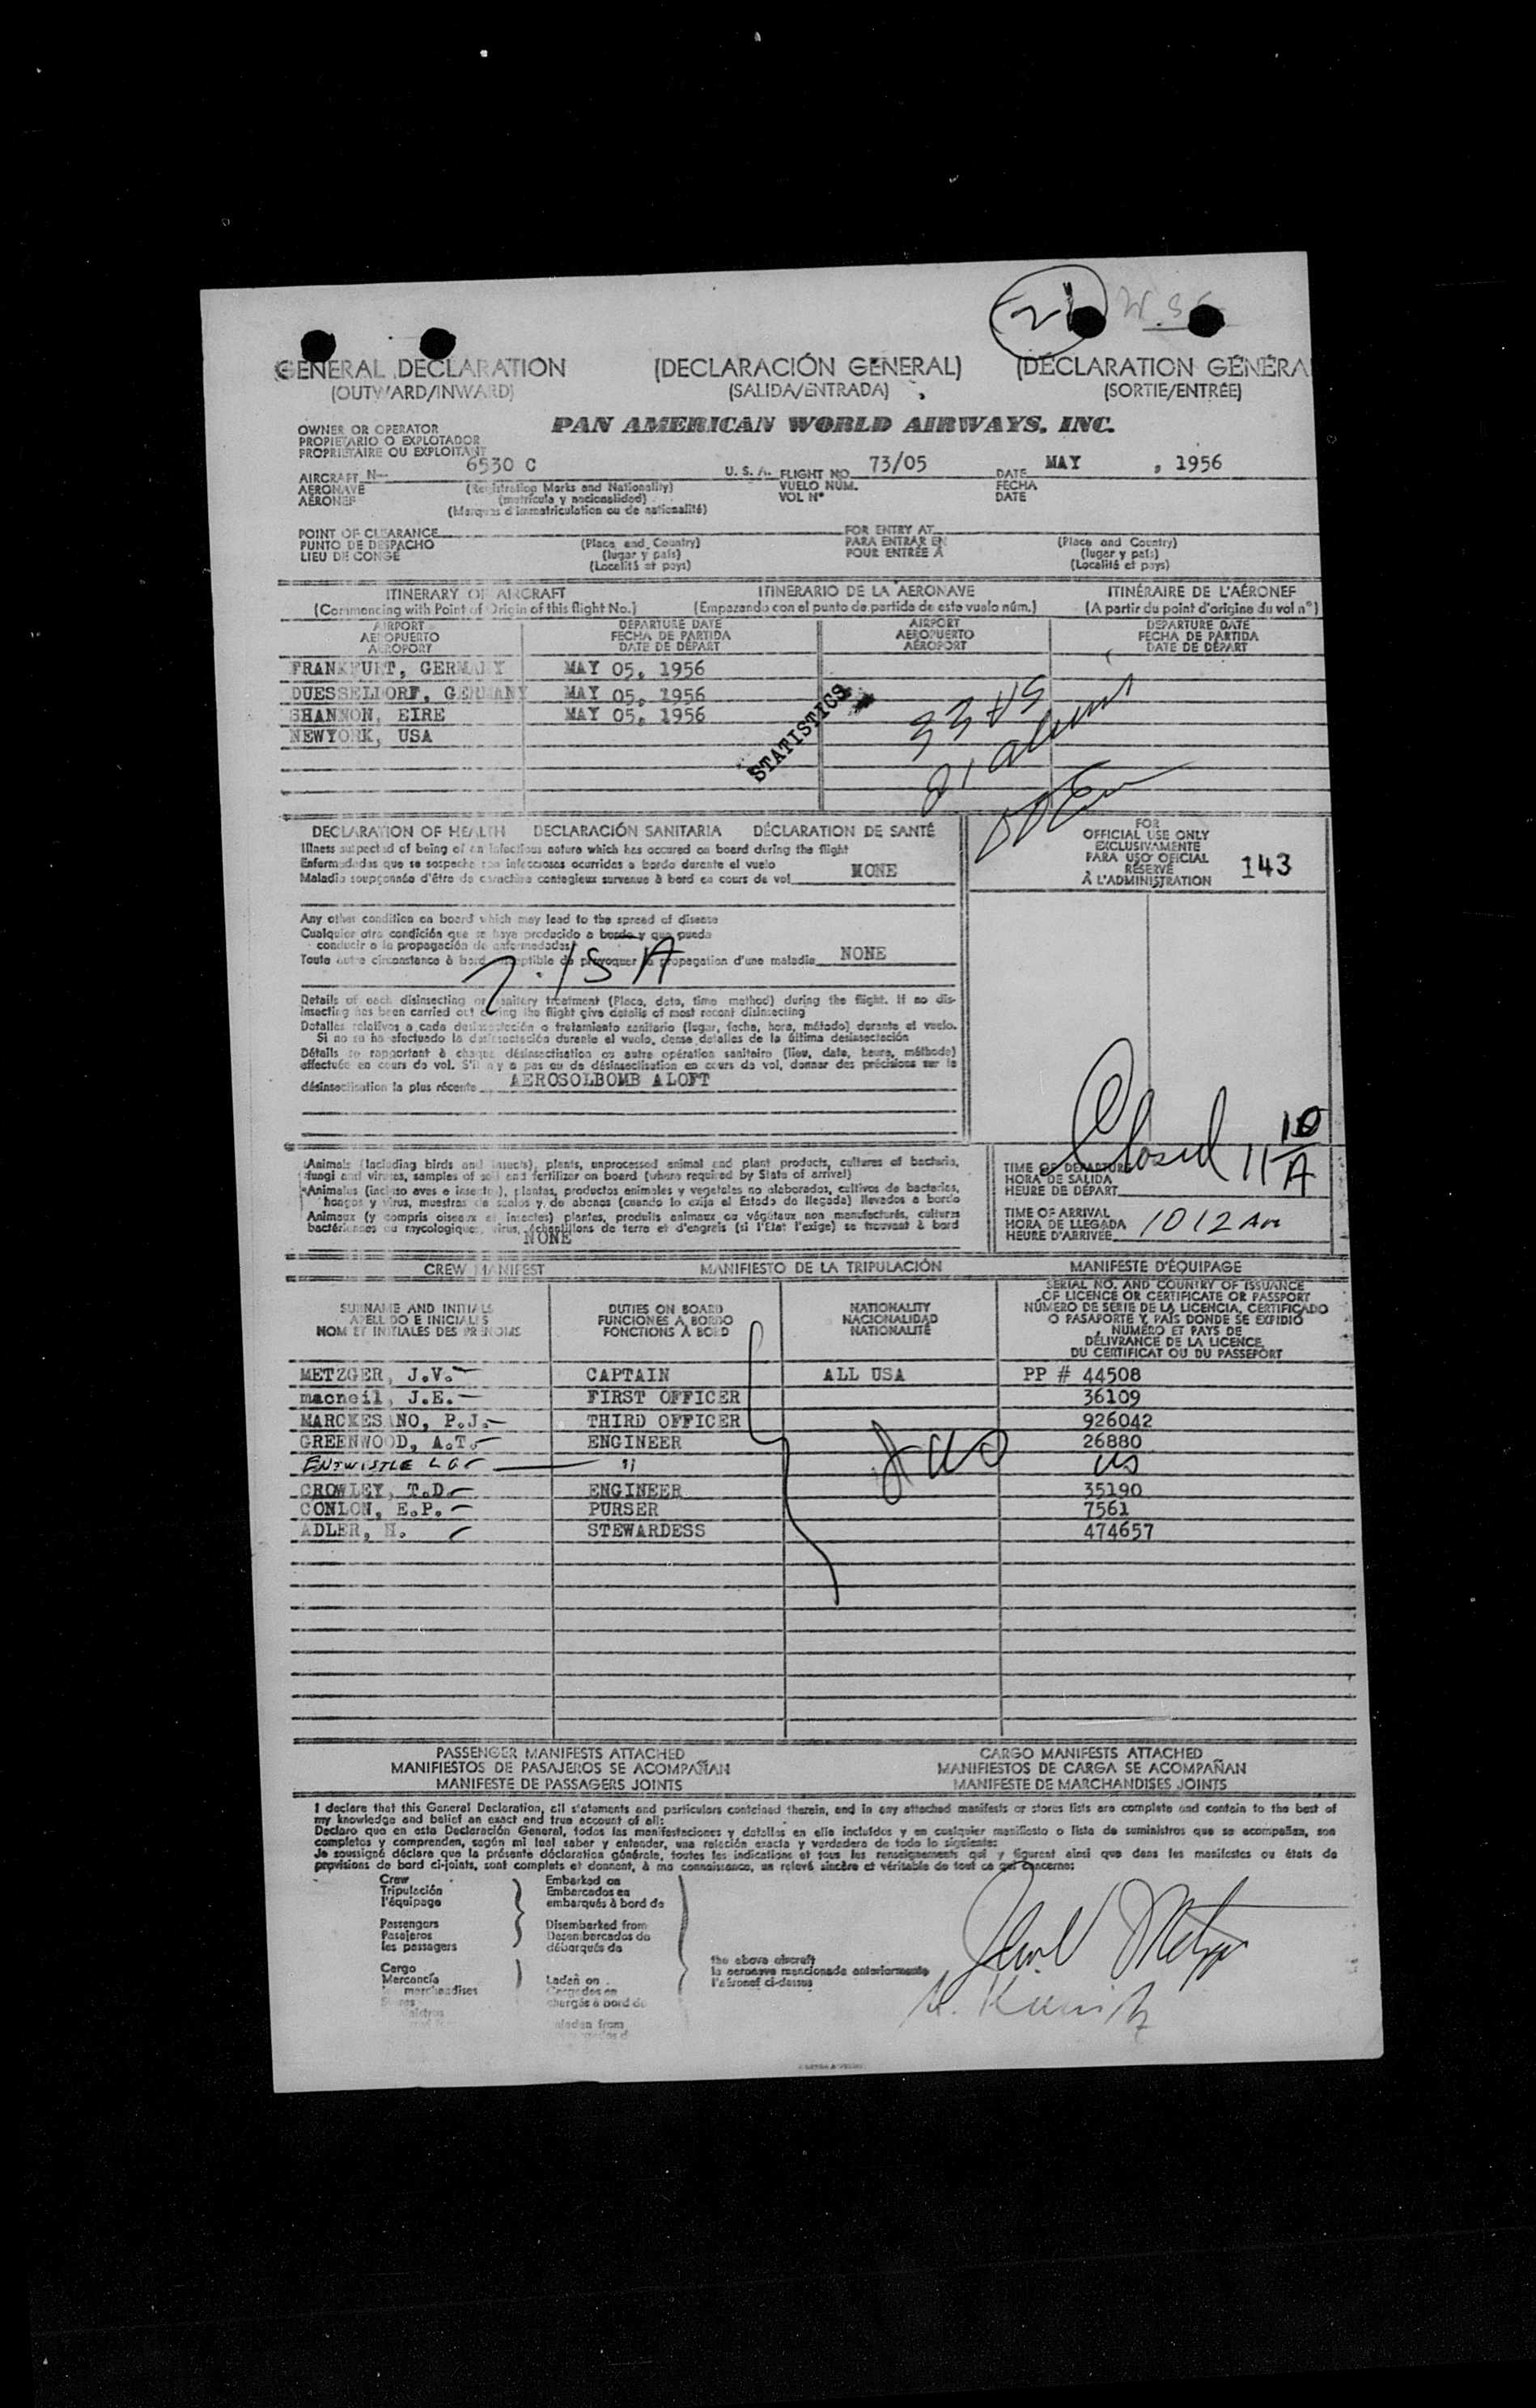 GENERAL DECLARATION (DECLARACIÓN GENERAL) (DÉCLARATION GÉNÉRA
(OUTWARD/INWARD) (SALIDA/ENTRADA) (SORTIE/ENTRÉE)
OWNER OR OPERATOR PAN AMERICAN WORLD AIRWAYS, INC.
PROPIETARIO O EXPLOTADOR
PROPRIÉTAIRE OU EXPLOITANT
AIRCRAFT N- 6530 C U. S. A. FLIGHT NO. 73/05 DATE MAY , 1956
AERONAVE (Registration Marks and Nationality) VUELO NÚM. FECHA
AÉRONEF (matrícula y nacionalidad) VOL N° DATE
(Marques d'immatriculation ou de nationalité)
POINT OF CLEARANCE FOR ENTRY AT
PUNTO DE DESPACHO (Place and Country) PARA ENTRAR EN (Place and Country)
LIEU DE CONGÉ (lugar y país) POUR ENTRÉE À (lugar y país)
(Localité et pays) (Localité et pays)
ITINERARY OF AIRCRAFT ITINERARIO DE LA AERONAVE ITINÉRAIRE DE L'AÉRONEF
(Commencing with Point of Origin of this flight No.) (Empezando con el punto de partida de este vuelo núm.) (A partir du point d'origine du vol n°)
AIRPORT DEPARTURE DATE AIRPORT DEPARTURE DATE
AEROPUERTO FECHA DE PARTIDA AEROPUERTO FECHA DE PARTIDA
AÉROPORT DATE DE DÉPART AÉROPORT DATE DE DÉPART
FRANKFURT, GERMANY MAY 05, 1956
DUESSELDORF, GERMANY MAY 05, 1956
SHANNON, EIRE MAY 05, 1956
NEWYORK, USA
STATISTICS
DECLARATION OF HEALTH DECLARACIÓN SANITARIA DÉCLARATION DE SANTÉ
Illness suspected of being of an infectious nature which has occured on board during the flight
Enfermedades que se sospeche son infecciosas ocurridas a bordo durante el vuelo
Maladie soupçonnée d'être de caractère contagieux survenue à bord en cours de vol NONE
FOR
OFFICIAL USE ONLY
EXCLUSIVAMENTE
PARA USO OFICIAL
RÉSERVÉ
À L'ADMINISTRATION 143
Any other condition on board which may lead to the spread of disease
Cualquier otra condición que se haya producido a bordo y que pueda
conducir a la propagación de enfermedades
Toute autre circonstance à bord susceptible de provoquer la propagation d'une maladie NONE
Details of each disinsecting or sanitary treatment (Place, date, time method) during the flight. If no dis-
insecting has been carried out during the flight give details of most recent disinsecting
Detalles relativos a cada desinsectación o tratamiento sanitario (lugar, fecha, hora, método) durante el vuelo.
Si no se ha efectuado la desinsectación durante el vuelo, dense detalles de la última desinsectación
Détails se rapportant à chaque désinsectisation ou autre opération sanitaire (lieu, date, heure, méthode)
effectuée en cours de vol. S'il n'y a pas eu de désinsectisation en cours de vol, donner des précisions sur la
désinsectisation la plus récente AEROSOLBOMB ALOFT
Animals (including birds and insects), plants, unprocessed animal and plant products, cultures of bacteria,
fungi and viruses, samples of soil and fertilizer on board (where required by State of arrival)
Animales (incluso aves e insectos), plantas, productos animales y vegetales no elaborados, cultivos de bacterias,
hongos y virus, muestras de suelos y de abonos (cuando lo exija el Estado de llegada) llevados a bordo
Animaux (y compris oiseaux et insectes) plantes, produits animaux ou végétaux non manufacturés, cultures
bactériennes ou mycologiques, virus, échantillons de terre et d'engrais (si l'Etat l'exige) se trouvant à bord
NONE
Closed 11 10/A
TIME OF DEPARTURE
HORA DE SALIDA
HEURE DE DÉPART
TIME OF ARRIVAL
HORA DE LLEGADA
HEURE D'ARRIVÉE 1012 Am
CREW MANIFEST MANIFIESTO DE LA TRIPULACIÓN MANIFESTE D'ÉQUIPAGE
SURNAME AND INITIALS
APELLIDO E INICIALES
NOM ET INITIALES DES PRÉNOMS
DUTIES ON BOARD
FUNCIONES A BORDO
FONCTIONS À BORD
NATIONALITY
NACIONALIDAD
NATIONALITÉ
SERIAL NO. AND COUNTRY OF ISSUANCE
OF LICENCE OR CERTIFICATE OR PASSPORT
NÚMERO DE SERIE DE LA LICENCIA, CERTIFICADO
O PASAPORTE Y PAÍS DONDE SE EXPIDIÓ
NUMÉRO ET PAYS DE
DÉLIVRANCE DE LA LICENCE,
DU CERTIFICAT OU DU PASSEPORT
METZGER, J.V. CAPTAIN ALL USA PP # 44508
macneil, J.E. FIRST OFFICER 36109
MARCKESANO, P.J. THIRD OFFICER 926042
GREENWOOD, A.T. ENGINEER 26880
ENTWISTLE L G " US
CROWLEY, T.D. ENGINEER 35190
CONLON, E.P. PURSER 7561
ADLER, H. STEWARDESS 474657
PASSENGER MANIFESTS ATTACHED CARGO MANIFESTS ATTACHED
MANIFIESTOS DE PASAJEROS SE ACOMPAÑAN MANIFIESTOS DE CARGA SE ACOMPAÑAN
MANIFESTE DE PASSAGERS JOINTS MANIFESTE DE MARCHANDISES JOINTS
I declare that this General Declaration, all statements and particulars contained therein, and in any attached manifests or stores lists are complete and contain to the best of
my knowledge and belief an exact and true account of all:
Declaro que en esta Declaración General, todas las manifestaciones y detalles en ella incluídos y en cualquier manifiesto o lista de suministros que se acompañan, son
completos y comprenden, según mi leal saber y entender, una relación exacta y verdadera de todo lo siguiente:
Je soussigné déclare que la présente déclaration générale, toutes les indications et tous les renseignements qui y figurent ainsi que dans les manifestes ou états de
provisions de bord ci-joints, sont complets et donnent, à ma connaissance, un relevé sincère et véritable de tout ce qui concerne:
Crew Embarked on
Tripulación Embarcados en
l'équipage embarqués à bord de
Passengers Disembarked from
Pasajeros Desembarcados de
les passagers débarqués de
Cargo the above aircraft
Mercancía Laden on la aeronave mencionada anteriormente
marchandises Cargados en l'aéronef ci-dessus
chargés à bord de